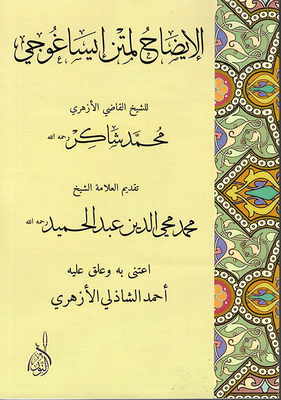 الإيضاح لمتن إيساغوجي
للشيخ القاضي الأزهري
محمد شاكر رحمه الله
تقديم العلامة الشيخ
محمد محي الدين عبد الحميد رحمه الله
اعتنى به وعلق عليه
أحمد الشاذلي الأزهري